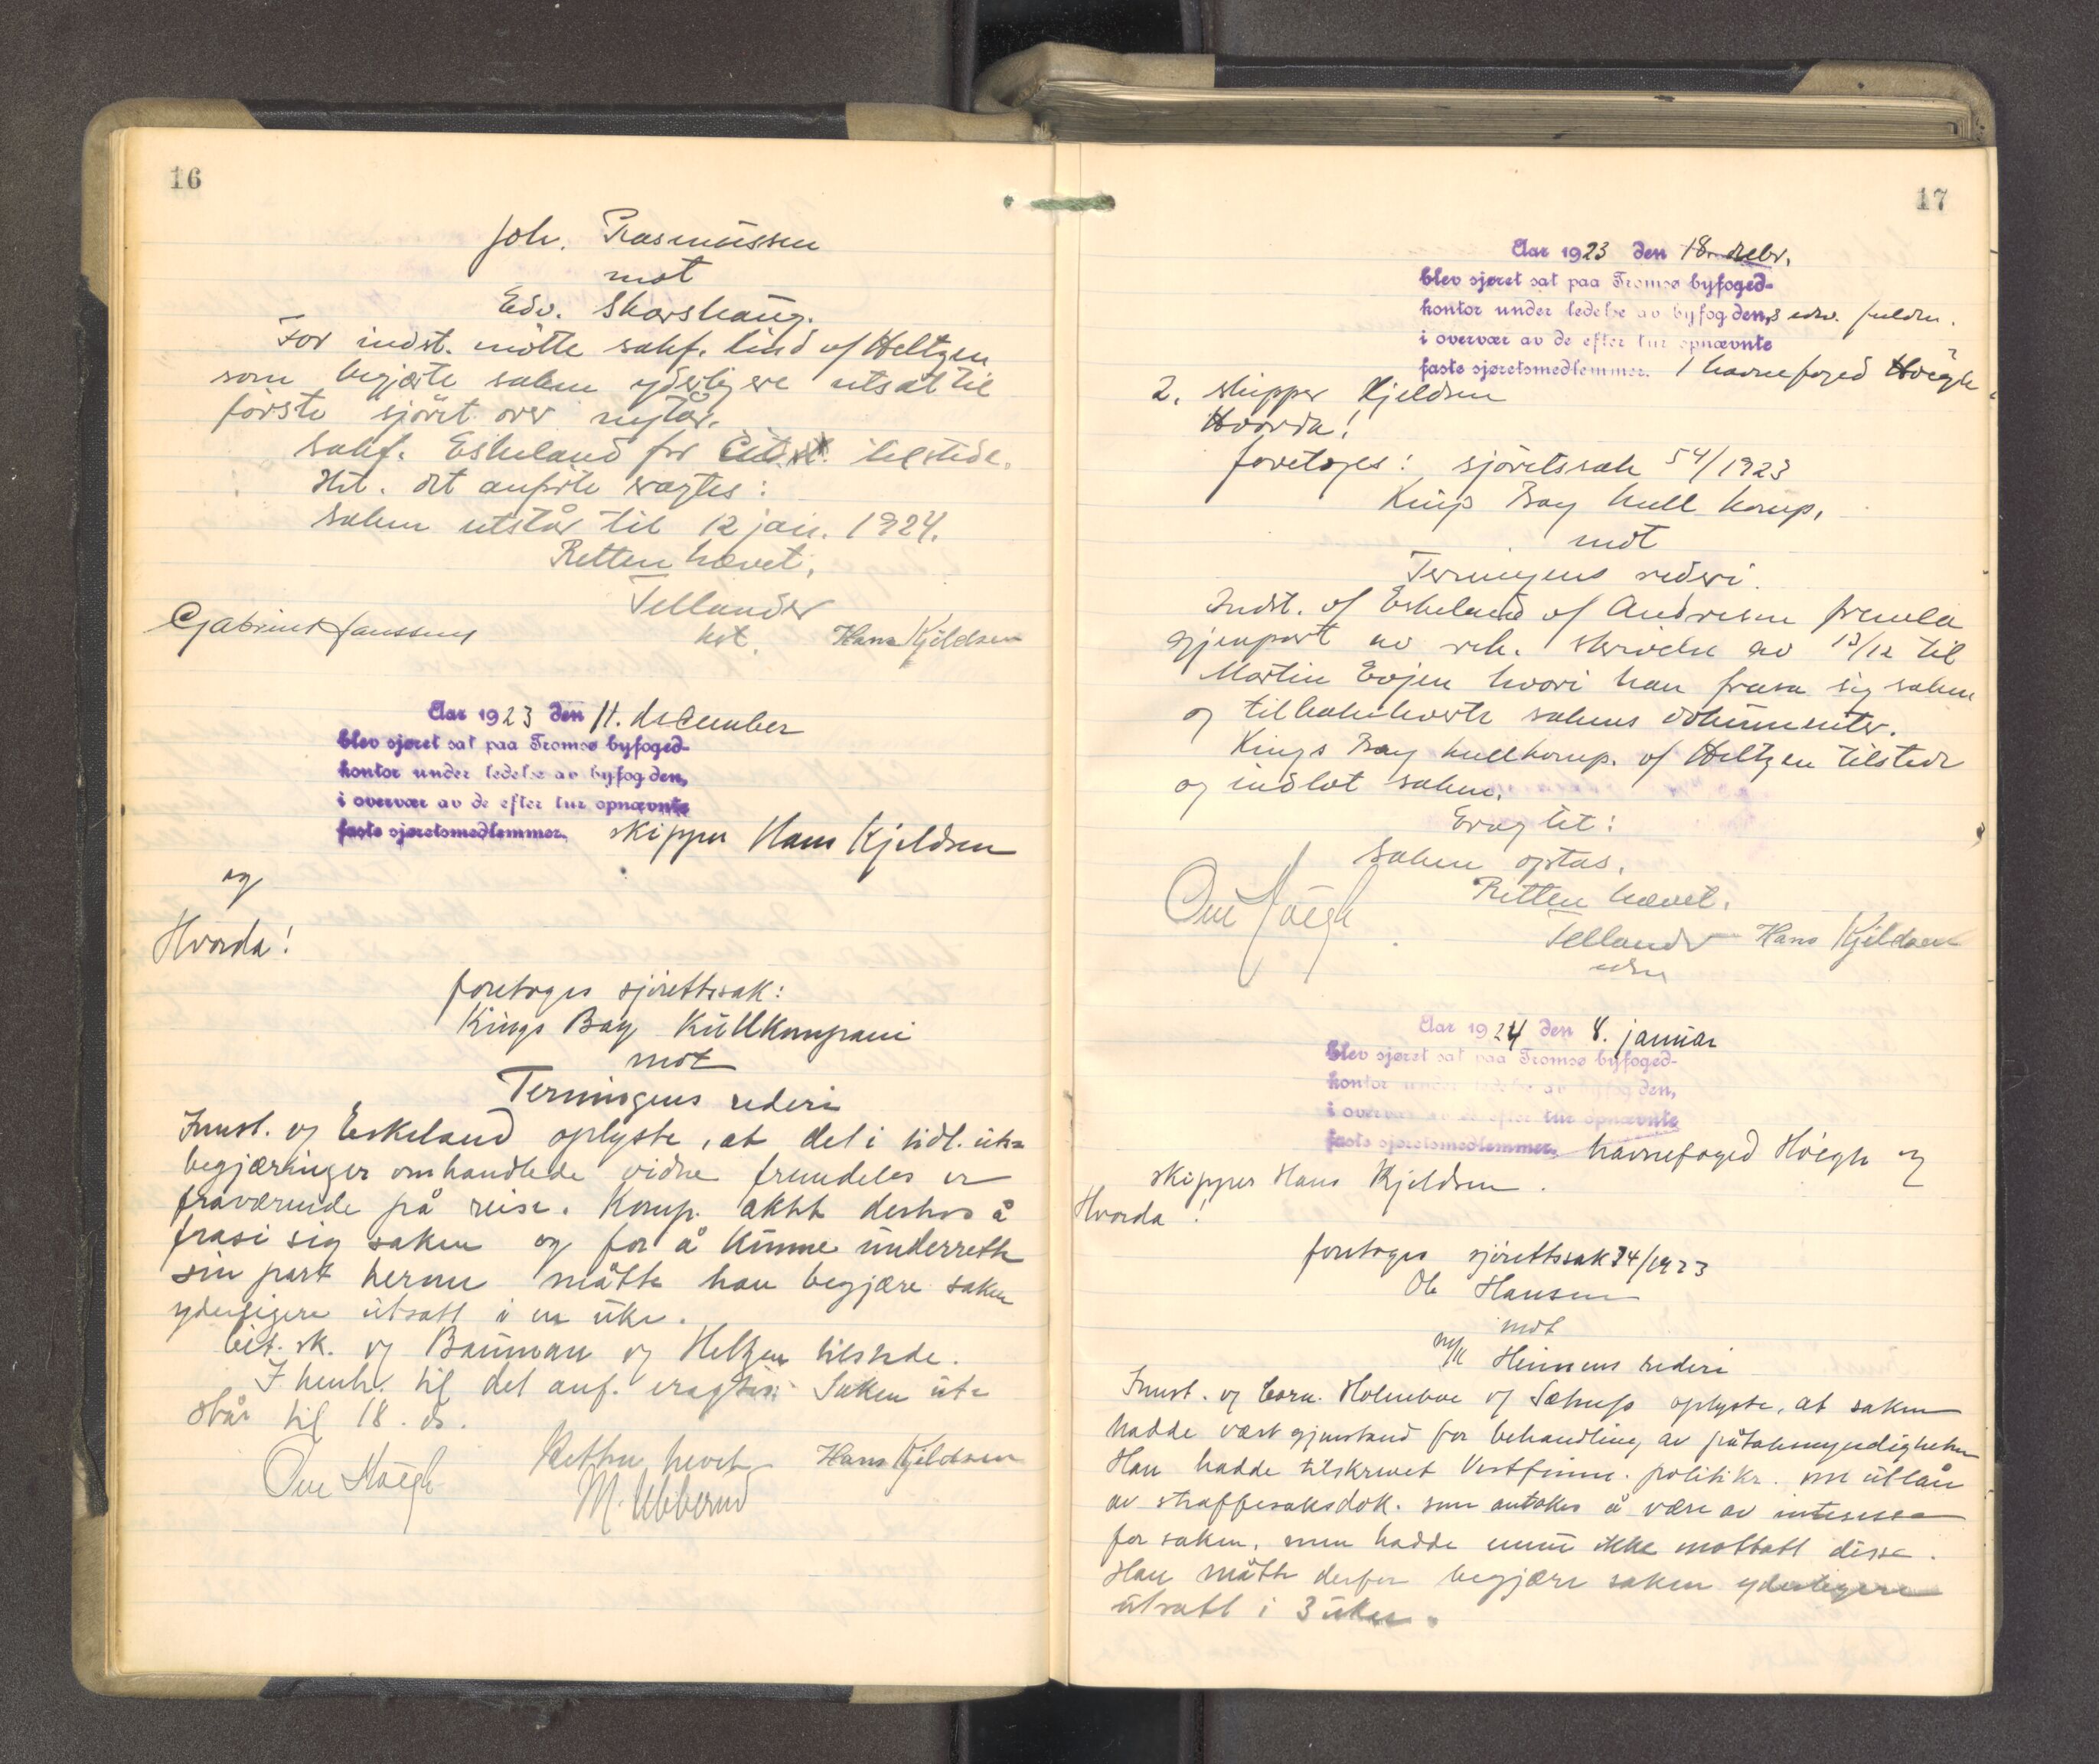 16
Joh. Rasmussen
mot
Edv. Skarshaug.
For indst. møtte sakf. Lind v/ Heltzen
som begjærte saken yderligere utsat til
første sjøret over nytår.
Sakf. Eskeland for Cit. tilstede.
Iht. det anførte eragtes:
Saken utstår til 12 jan. 1924.
Retten hævet.
Tellander
kst.
Hans Kjeldsen
Aar 1923 den 11. december
blev sjøret sat paa Tromsø byfoged-
kontor under ledelse av byfogden,
i overvær av de efter tur opnævnte
faste sjøretsmedlemmer. skipper Hans Kjeldsen
og
Hvorda!
foretoges sjørettssak:
Kings Bay Kullkompani
mot
Terningens rederi
Innst. v/ Eskeland oplyste, at det i tidl. uts.
begjæringer omhandlede vidne fremdeles er
fraværende på reise. Komp. aktet deshos å
frasi sig saken og for å kunne underrette
sin part herom måtte han begjære saken
yderligere utsatt i en uke.
Cit. sk. v/ Bauman v/ Heltzen tilstede.
I henh. til det anf. eragtes: Saken ut-
står til 18. ds.
Retten hevet
Ove Høegh
Hans Kjeldsen
17
Aar 1923 den 18. desbr.
blev sjøret sat paa Tromsø byfoged-
kontor under ledelse av byfogden,s edsv. fuldm.
i overvær av de efter tur opnævnte
faste sjøretsmedlemmer. 1 havnefoged Høegh
2. skipper Kjeldsen
Hvorda!
foretoges: sjøretssak 54/1923
Kings Bay kull komp.
mot
Terningens rederi.
Indst. v/ Eskeland v/ Andresen fremla
gjenpart av rek. skrivelse av 13/12 til
Martin Evjen hvori han frasa sig saken
og tilbakeleverte sakens dokumenter.
Kings Bay kullkomp. v/ Heltzen tilstede
og indlot saken.
Eragtet:
Saken optas.
Retten hævet.
Ove Høegh
Tellander
Hans Kjeldsen
Aar 1924 den 8. januar
blev sjøret sat paa Tromsø byfoged-
kontor under ledelse av byfogden,
i overvær av de efter tur opnævnte
faste sjøretsmedlemmer. havnefoged Høegh og
skipper Hans Kjeldsen.
Hvorda!
foretoges sjørettssak 34/1923
Ole Hansen
mot
m/k Heimens rederi
Innst. v/ Corn. Holmboe v/ Sætrup oplyste, at saken
hadde vært gjenstand for behandling av påtalemyndigheten
Han hadde tilskrevet Vestfinn. politikr. om utlån
av straffesaksdok. som antokes å være av interesse
for saken, men hadde ennu ikke mottatt disse.
Han måtte derfor begjære saken yderligere
utsatt i 3 uker.